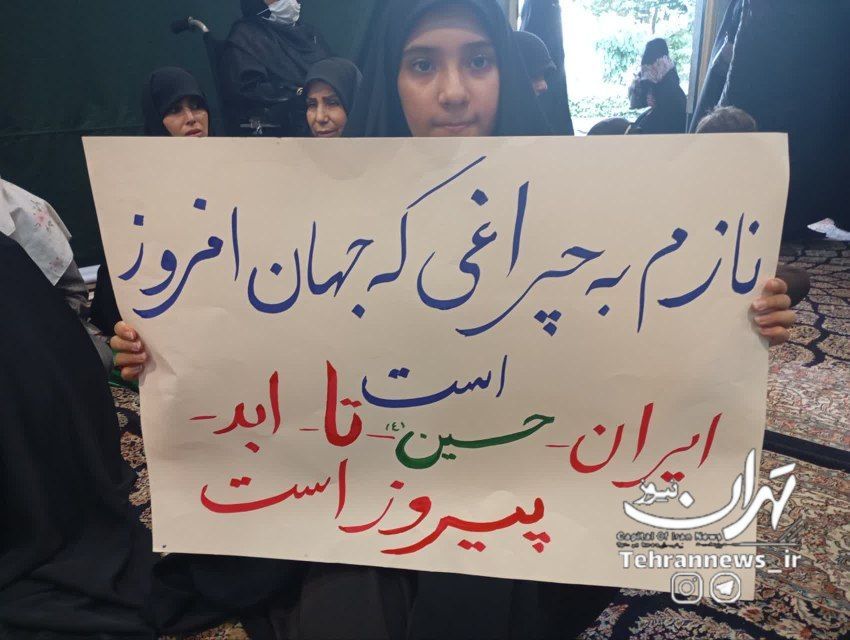 نازم به چراغی که جهان افروز
است
ایران - حسین (ع) - تا - ابد -
پیروز است
تهران نیوز
Capital Of Iran News
Tehrannews_ir